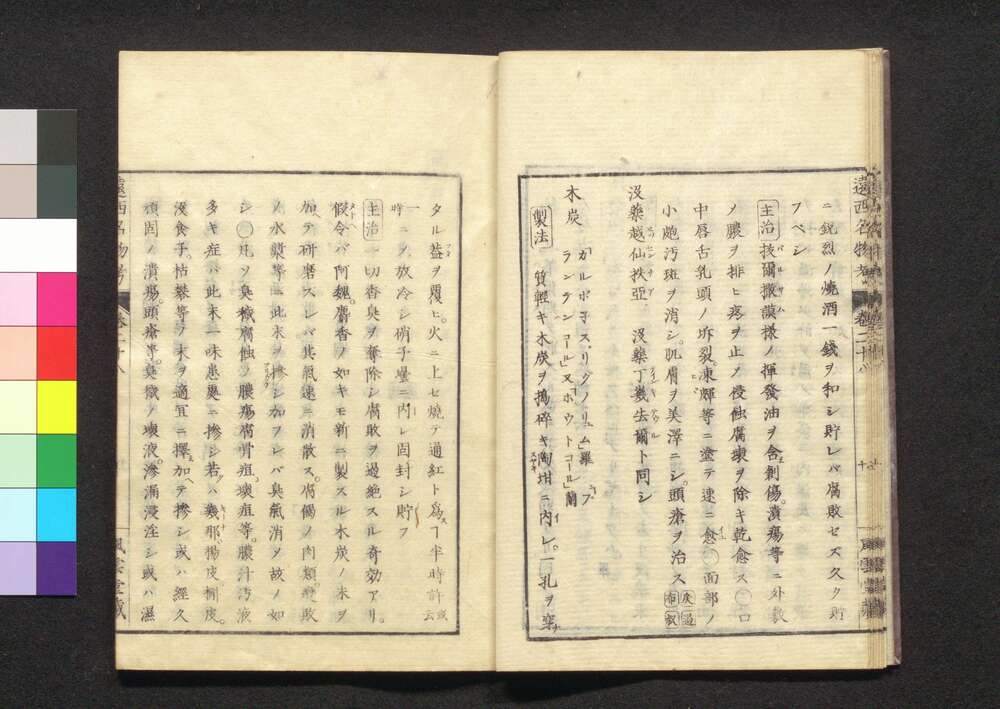 ニ鋭烈ノ燒酒一錢ヲ和シ貯レバ腐敗セズ久ク貯
フベシ
主治 抜爾撒謨樣ノ揮發油ヲ含ミ創傷。潰瘍等ニ外敷
ノ膿ヲ排ヒ疼ヲ止メ侵蝕腐壊ヲ除キ乾愈ス○口
中唇舌乳頭ノ坼裂。凍輝等ニ塗テ速ニ愈ユ○面部ノ
小皰汚斑ヲ消シ。肌膚ヲ美澤ニシ。頭瘡ヲ治ス
没藥越仙抶亞 没藥丁幾去爾ト同シ
木炭 カルボ子ス、リグノリュム羅 ランデンコール又ホウトコール蘭
製法 質輕キ木炭ヲ搗碎キ陶坩ニ内レ。一孔ヲ穿
遠西名物考 卷二十八
タル蓋ヲ覆ヒ。火ニ上セ燒テ通紅ト爲スヿ半時許或云
一時ニシテ放冷シ硝子壜ニ内レ固封シ貯フ
主治 一切香臭ヲ奪除シ腐敗ヲ遏絶スル奇効アリ。
假令バ阿魏。麝香ノ如キモ新ニ製スル木炭ノ末ヲ
加ヘテ研磨スレバ其氣速ニ消散ス。腐傷ノ肉類。敗
ノ水漿等ニ此末ヲ摻シ加フレバ臭氣消ノ故ノ如
シ○凡ソ臭穢腐蝕ノ膿瘍腐骨疽。壊疽等。膿汁汚液
多キ症バ此末一味患處ニ摻シ若クハ幾那。楊皮槲皮。
没食子。枯礬等ノ末ヲ適宜ニ擇加ヘテ摻シ或ハ經久
頑固ノ潰瘍。頭瘡等。臭穢ノ壊液。滲漏浸淫シ或ハ濕
遠西名物考 卷二十八 風雲堂藏